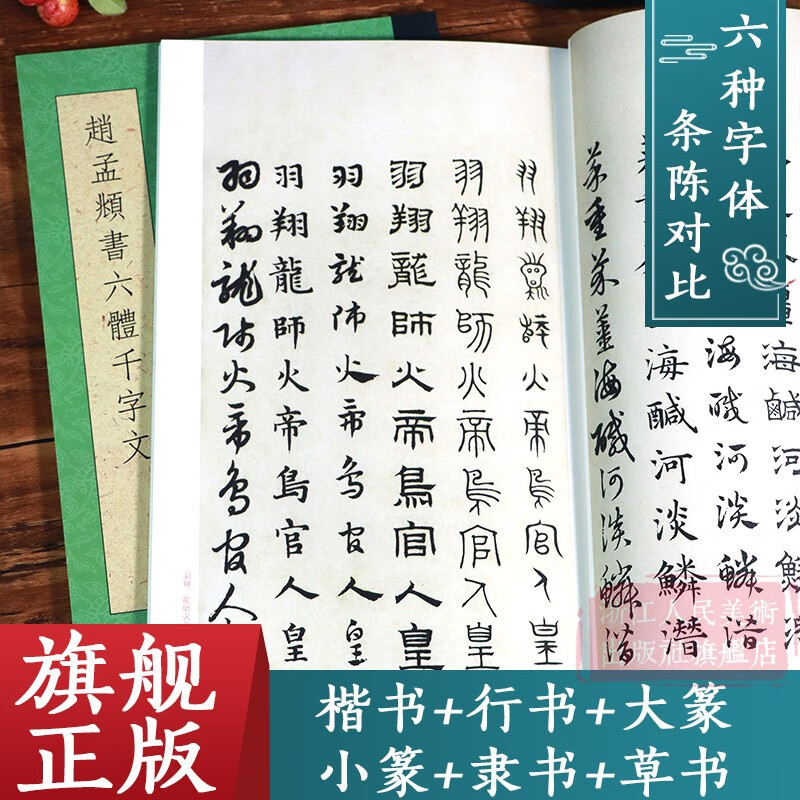 六种字体
条陈对比
趙孟頫書六體千字文
羽翔龍師火帝鳥官人皇
羽翔龍師火帝鳥官人皇
羽翔龍師火帝鳥官人皇
羽翔龍師火帝鳥官人皇
羽翔龍師火帝鳥官人皇
羽翔龍師火帝鳥官人
海鹹河淡鱗
海鹹河淡鱗潛
海鹹河淡鱗潛
菜重芥薑海鹹河淡鱗潛
浙江人民美術
出版社旗艦店
旗舰
正版
楷书+行书+大篆
小篆+隶书+草书